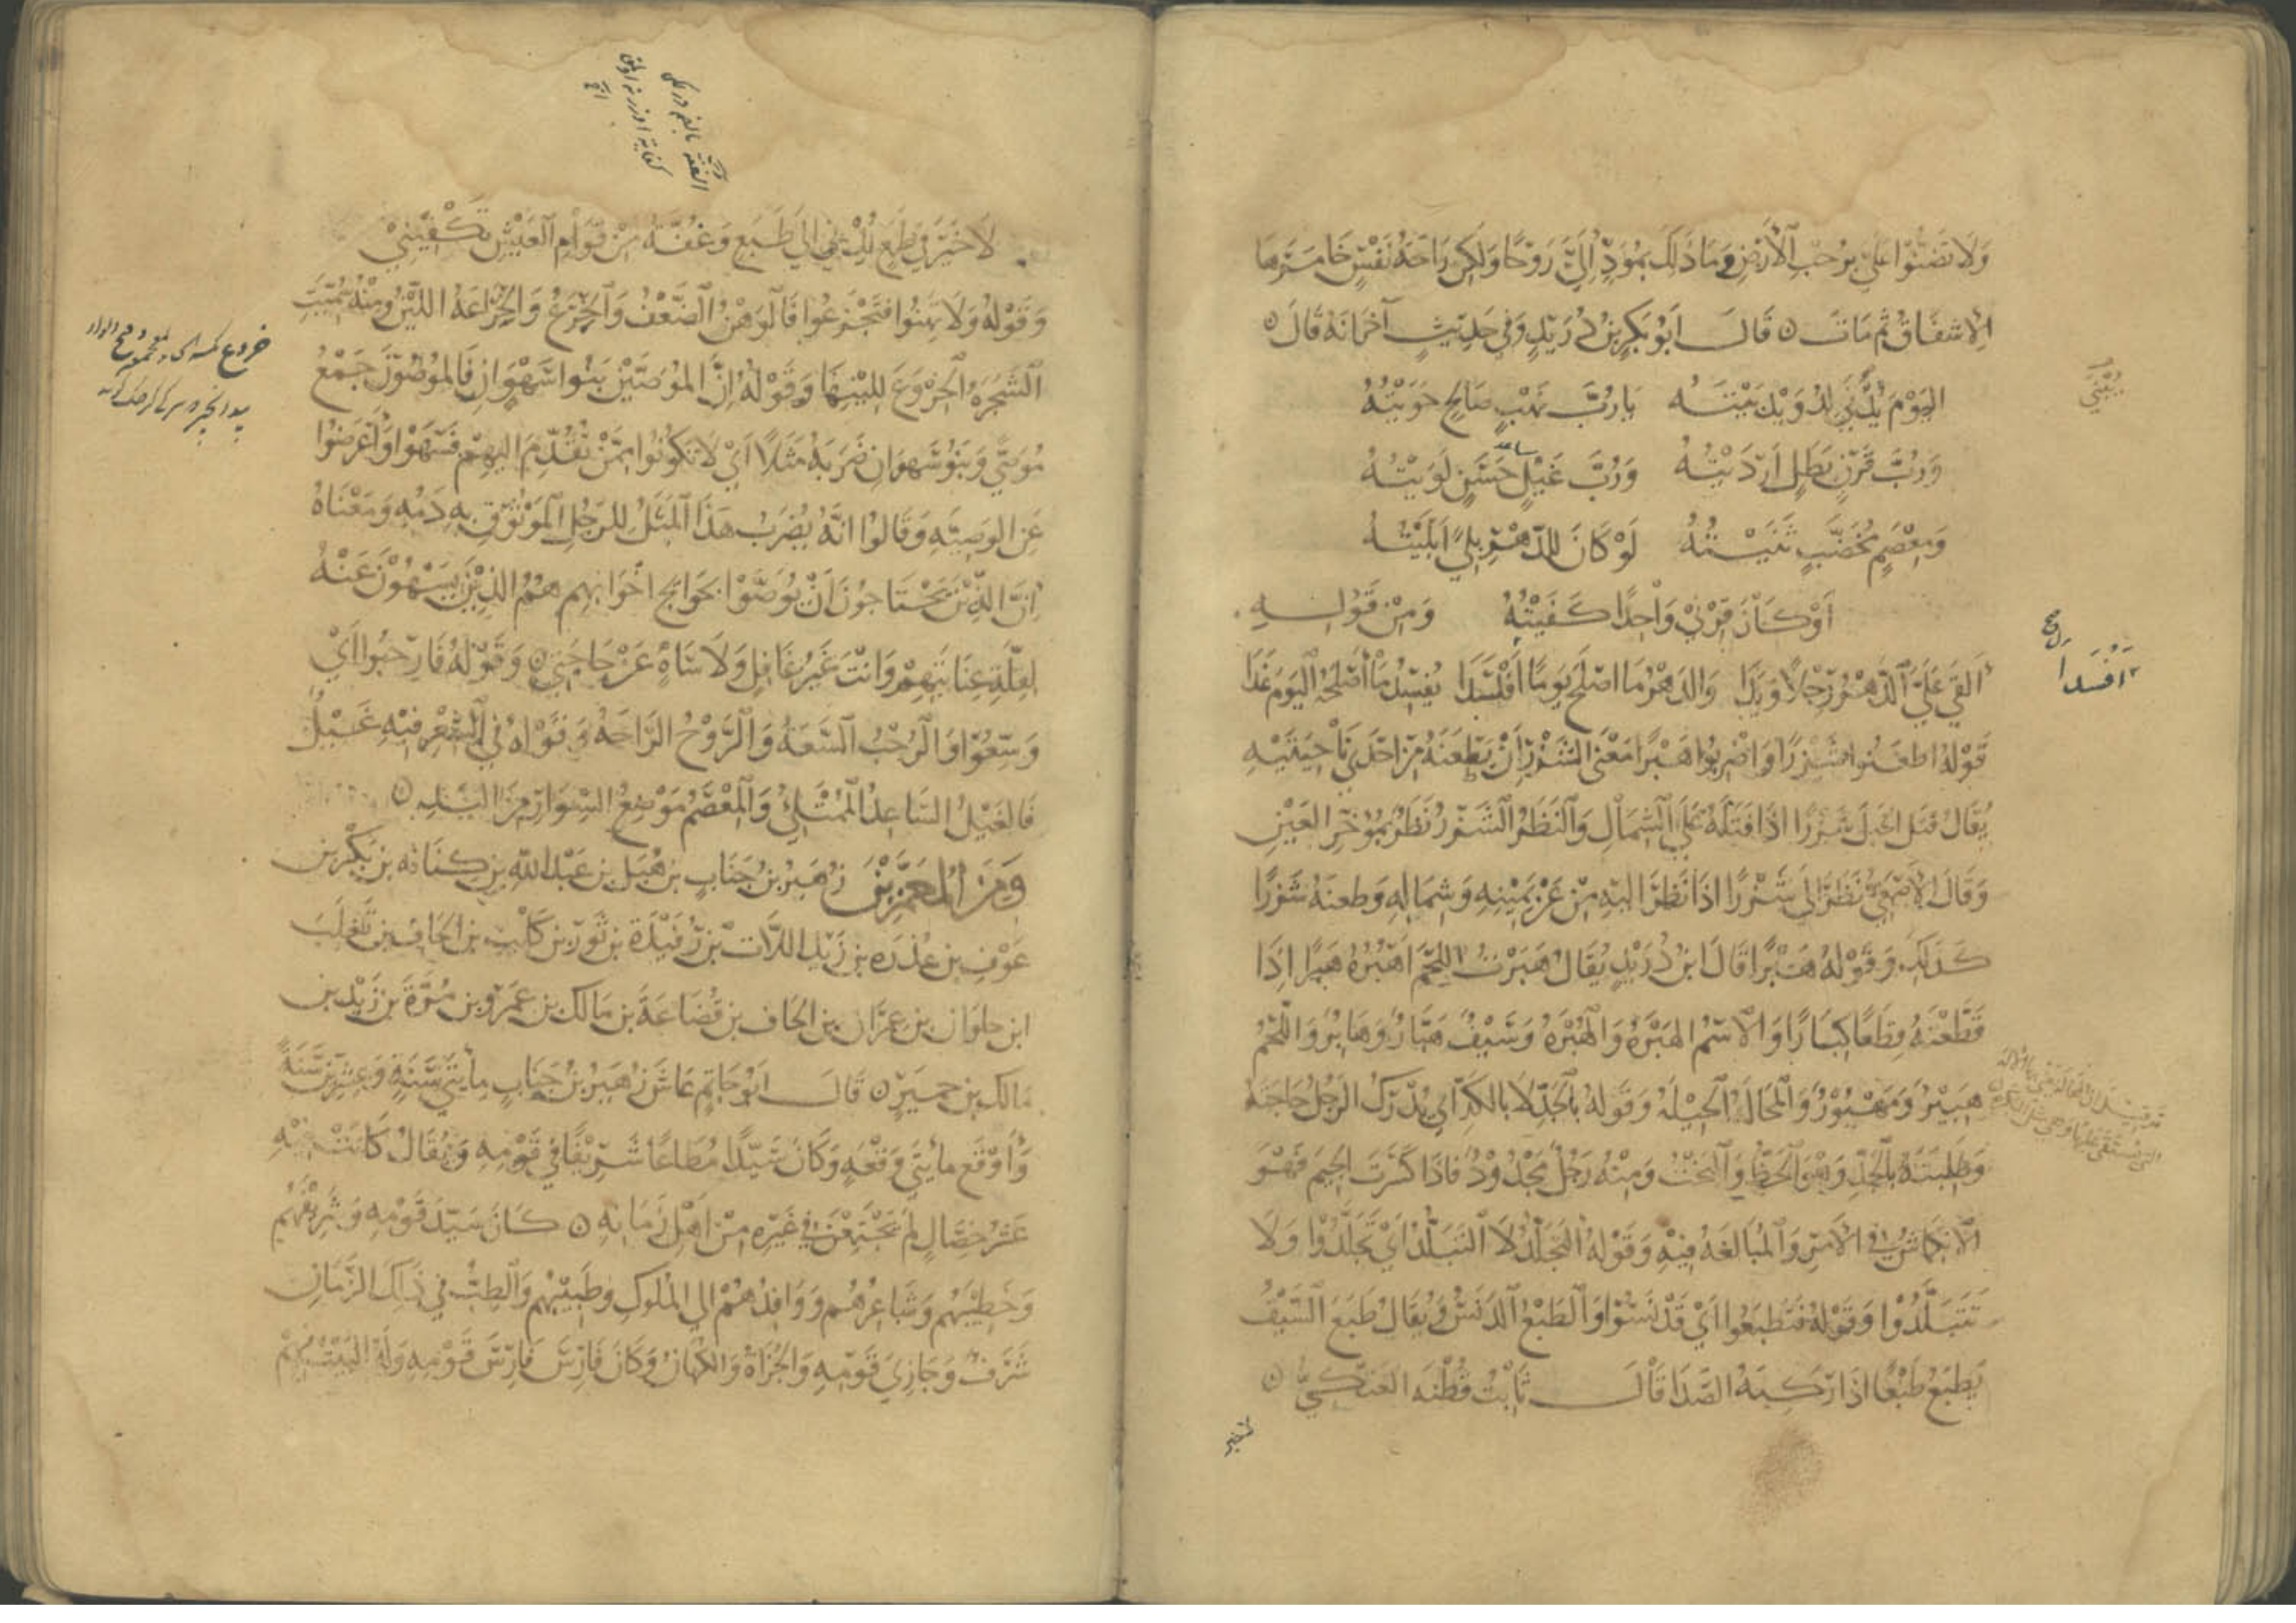 وَلَا تَضِنُّوا عَلَيَّ بِرُحْبِ الْأَرْضِ وَمَا ذَلِكَ بِمُوَدٍّ إِلَيَّ رَوْحًا وَلَكِنْ رَاحَةُ نَفْسٍ خَامَرَهَا
الْاِشْفَاقُ ثُمَّ مَاتَ ۝ قَالَ اَبُو بَكْرِ بْنُ دُرَيْدٍ وَفِي حَدِيثٍ آخَرَ اَنَّهُ قَالَ ۝
اليَوْمَ يُبْنَى لِدُوَيْدٍ بَيْتُهُ يَا رُبَّ نَهْبٍ صَالِحٍ حَوَيْتُهُ
يُبْنَى
وَرُبَّ قِرْنٍ بَطَلٍ اَرْدَيْتُهُ وَرُبَّ غَيْلٍ حَسَنٍ لَوَيْتُهُ
ساعد
وَمِعْصَمٍ مُخَضَّبٍ ثَنَيْتُهُ لَوْ كَانَ لِلدَّهْرِ بِلًى اَبْلَيْتُهُ
اَوْ كَانَ قِرْنِي وَاحِدًا كَفَيْتُهُ وَمِنْ قَوْلِهِ
اَلْقَى عَلَيَّ الدَّهْرُ رِجْلًا وَيَدَا وَالدَّهْرُ مَا اَصْلَحَ يَوْمًا اَفْسَدَا يُفْسِدُ مَا اَصْلَحَهُ الْيَوْمَ غَدَا
اَفْسَدا صح
قَوْلُهُ اطْعَنُوا شَزْرًا وَاضْرِبُوا هَبْرًا مَعْنَى الشَّزْرِ اَنْ يَطْعَنَهُ مِنْ اِحْدَى نَاحِيَتَيْهِ
يُقَالُ فَتَلَ الْحَبْلَ شَزْرًا اِذَا فَتَلَهُ عَلَى الشِّمَالِ وَالنَّظَرُ الشَّزْرُ نَظَرٌ بِمُؤْخِرِ الْعَيْنِ
وَقَالَ الْاَصْمَعِيُّ نَظَرَ اِلَيَّ شَزْرًا اِذَا نَظَرَ اِلَيْهِ مِنْ عَنْ يَمِيْنِهِ وَشِمَالِهِ وَطَعَنَهُ شَزْرًا
كَذَلِكَ وَقَوْلُهُ هَبْرًا قَالَ ابْنُ دُرَيْدٍ يُقَالُ هَبَرْتُ اللَّحْمَ اَهْبُرُهُ هَبْرًا اِذَا
قَطَّعْتَهُ قِطَعًا كِبَارًا وَالْاِسْمُ الْهَبْرَةُ وَالْهُبْرَةُ وَسَيْفٌ هَبَّارٌ وَهَابِرٌ وَاللَّحْمُ
هَبِيْرٌ وَمَهْبُوْرٌ وَالْمَحَالَةُ الْحِيْلَةُ وَقَوْلُهُ بِالْجَدِّ لَا بِالْكَدِّ اَيْ يُدْرِكُ الرَّجُلُ حَاجَتَهُ
وَطَلِبَتَهُ بِالْجَدِّ وَهُوَ الْحَظُّ وَالْبَخْتُ وَمِنْهُ رَجُلٌ مَجْدُوْدٌ فَاِذَا كَسَرْتَ الْجِيمَ فَهُوَ
الْاِنْكِمَاشُ فِي الْاَمْرِ وَالْمُبَالَغَةُ فِيْهِ وَقَوْلُهُ التَّجَلُّدُ لَا التَّبَلُّدُ اَيْ تَجَلَّدُوْا وَلَا
تَتَبَلَّدُوْا وَقَوْلُهُ فَتَطْبَعُوا اَيْ تَدْنَسُوْا وَالطَّبَعُ الدَّنَسُ وَيُقَالُ طَبِعَ السَّيْفُ
يَطْبَعُ طَبَعًا اِذَا رَكِبَهُ الصَّدَا قَالَ ثَابِتُ قُطْنَةَ الْعَتَكِيُّ ۝
لَا خَيْرَ فِي طَمَعٍ يُدْنِي اِلَى طَبَعٍ وَغُفَّةٌ مِنْ قِوَامِ الْعَيْشِ تَكْفِيْنِيْ
وَقَوْلُهُ وَلَا تَهِنُوا فَتَجْزَعُوا فَالْوَهْنُ الضَّعْفُ وَالْخَرَعُ وَالْخَرَاعَةُ اللِّيْنُ وَمِنْهُ سُمِّيَتِ
الشَّجَرَةُ الْخِرْوَعَ لِلِيْنِهَا وَقَوْلُهُ اِنَّ الْمُوَصَّيْنَ بَنُوا سَهْوَانَ فَالْمُوَصَّوْنَ جَمْعُ
مُوَصًّى وَبَنُو سَهْوَانَ ضَرَبَهُ مَثَلًا اَيْ لَا تَكُونُوا مِمَّنْ تُقُدِّمَ اِلَيْهِمْ فَسَهَوْا وَاَعْرَضُوا
عَنِ الْوَصِيَّةِ وَقَالُوا اِنَّهُ يُضْرَبُ هَذَا الْمَثَلُ لِلرَّجُلِ الْمَوْثُوْقِ بِهِ وَمَعْنَاهُ
اِنَّ الَّذِيْنَ يَحْتَاجُونَ اَنْ يُوَصَّوْا بِحَوَائِجِ اِخْوَانِهِمْ هُمُ الَّذِيْنَ يَسْهُوْنَ عَنْهُ
لِقِلَّةِ عِنَايَتِهِمْ وَاَنْتَ غَيْرُ غَافِلٍ وَلَا سَاهٍ عَنْ حَاجَتِي ۝ وَقَوْلُهُ فَارْحَبُوا اَيْ
وَسِّعُوْا وَالرُّحْبُ السَّعَةُ وَالرَّوْحُ الرَّاحَةُ وَقَوْلُهُ فِي الشِّعْرِ فِيْهِ غَيْلٌ
فَالْغَيْلُ السَّاعِدُ الْمُمْتَلِئُ وَالْمِعْصَمُ مَوْضِعُ السِّوَارِ مِنَ الْيَدِ ۝
وَمِنَ الْمُعَمَّرِيْنَ زُهَيْرُ بْنُ جَنَابِ بْنِ هُبَلِ بْنِ عَبْدِ اللَّهِ بْنِ كِنَانَة بْنِ بَكْرِ بْنِ
عَوْفِ بْنِ عُذْرَةَ بْنِ زَيْدِ اللَّاتِ بْنِ رُفَيْدَةَ بْنِ ثَوْرِ بْنِ كَلْبِ بْنِ تَغْلِبَ
ابْنِ حُلْوَانَ بْنِ عِمْرَانَ بْنِ الْحَافِ بْنِ قُضَاعَةَ بْنِ مَالِكِ بْنِ عَمْرِو بْنِ مُرَّةَ بْنِ زَيْدِ بْنِ
مَالِكِ بْنِ حِمْيَرٍ ۝ قَالَ اَبُو حَاتِمٍ عَاشَ زُهَيْرُ بْنُ جَنَابٍ مِائَتَيْ سَنَةٍ وَعِشْرِيْنَ سَنَةً
وَاَوْقَعَ مِائَتَيْ وَقْعَةٍ وَكَانَ سَيِّدًا مُطَاعًا شَرِيْفًا فِي قَوْمِهِ وَيُقَالُ كَانَتْ فِيْهِ
عَشْرُ خِصَالٍ لَمْ يَجْتَمِعْنَ فِي غَيْرِهِ مِنْ اَهْلِ زَمَانِهِ ۝ كَانَ سَيِّدَ قَوْمِهِ وَشَرِيْفَهُمْ
وَخَطِيْبَهُمْ وَشَاعِرَهُمْ وَوَافِدَهُمْ اِلَى الْمُلُوكِ وَطَبِيْبَهُمْ وَالطِّبُّ فِي ذَلِكَ الزَّمَانِ
شَرَفٌ وَحَازِيَ قَوْمِهِ وَالْحُزَاةُ الْكُهَّانُ وَكَانَ فَارِسَ قَوْمِهِ وَلَهُ الْبَيْتُ مِنْهُمْ